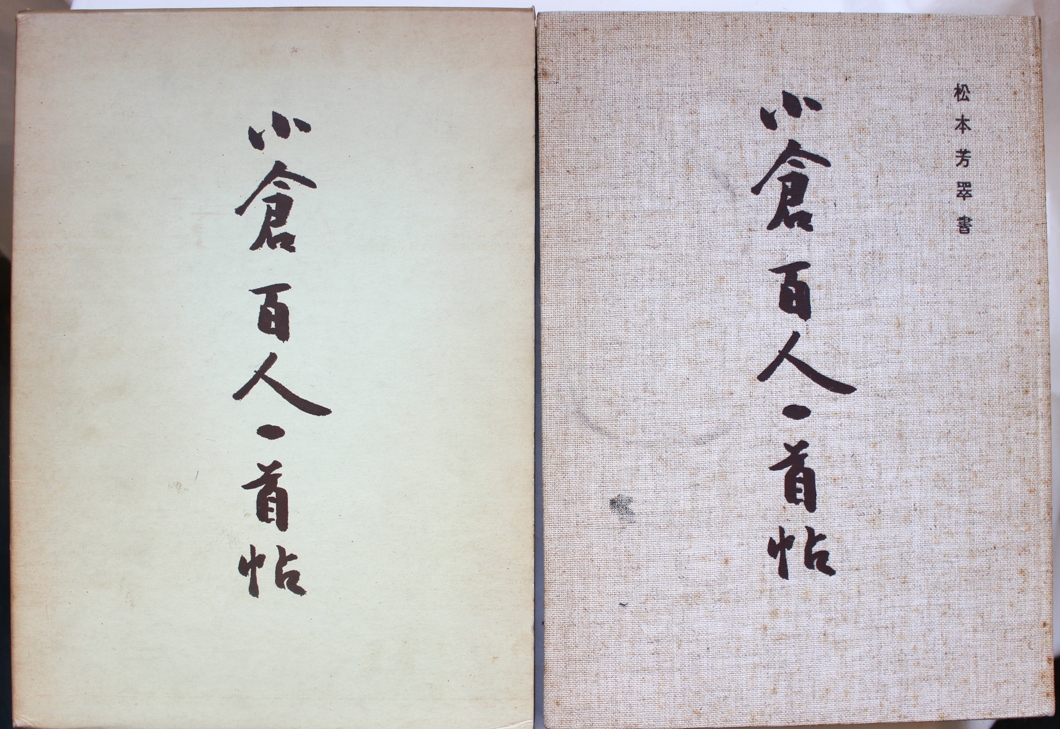 小倉百人一首帖
松本芳翠書
小倉百人一首帖